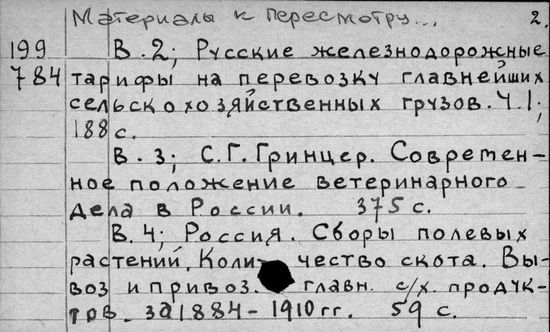 Материалы к пересмотру... 2.
199 В.2; Русские железнодорожные
784 тарифы на перевозку главнейших
сельскохозяйственных грузов. Ч.1;
188 с.
В. 3; С.Г. Гринцер. Современ-
ное положение ветеринарного
дела в России. 375 с.
В.4; Россия. Сборы полевых
растений. Коли чество скота. Вы-
воз и привоз. главн. с/х. продук-
тов. за 1884-1910 гг. 59 с.